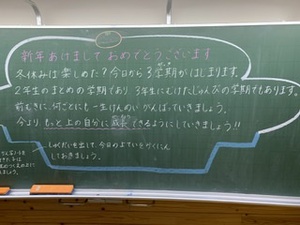 新年あけまして おめでとうございます
冬休みは楽しめた？今日から３学期がはじまります。
２年生のまとめの学期であり ３年生にむけたじゅんびの学期でもあります。
前むきに、何ごとにも 一生けんめい がんばっていきましょう。
今より、もっと上の自分に成長できるようにしていきましょう!!
しゅくだいを出して、今日のよていをかくにん
しておきましょう。